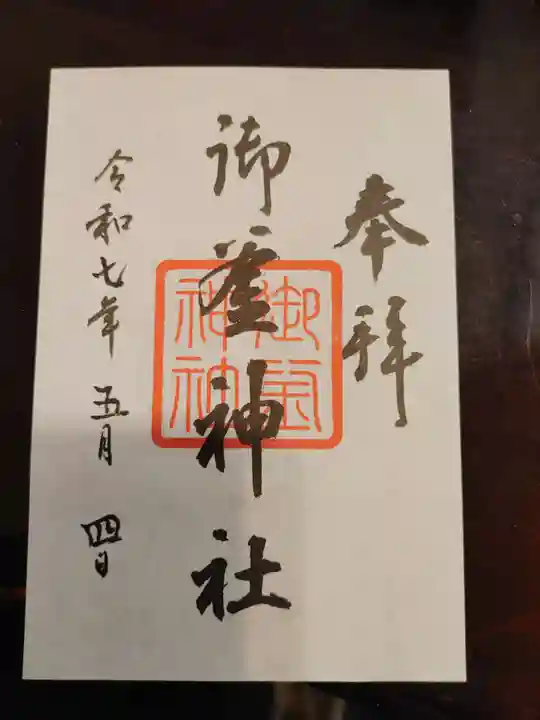 奉拝
御釜神社
御釜神社
令和七年 五月 四日